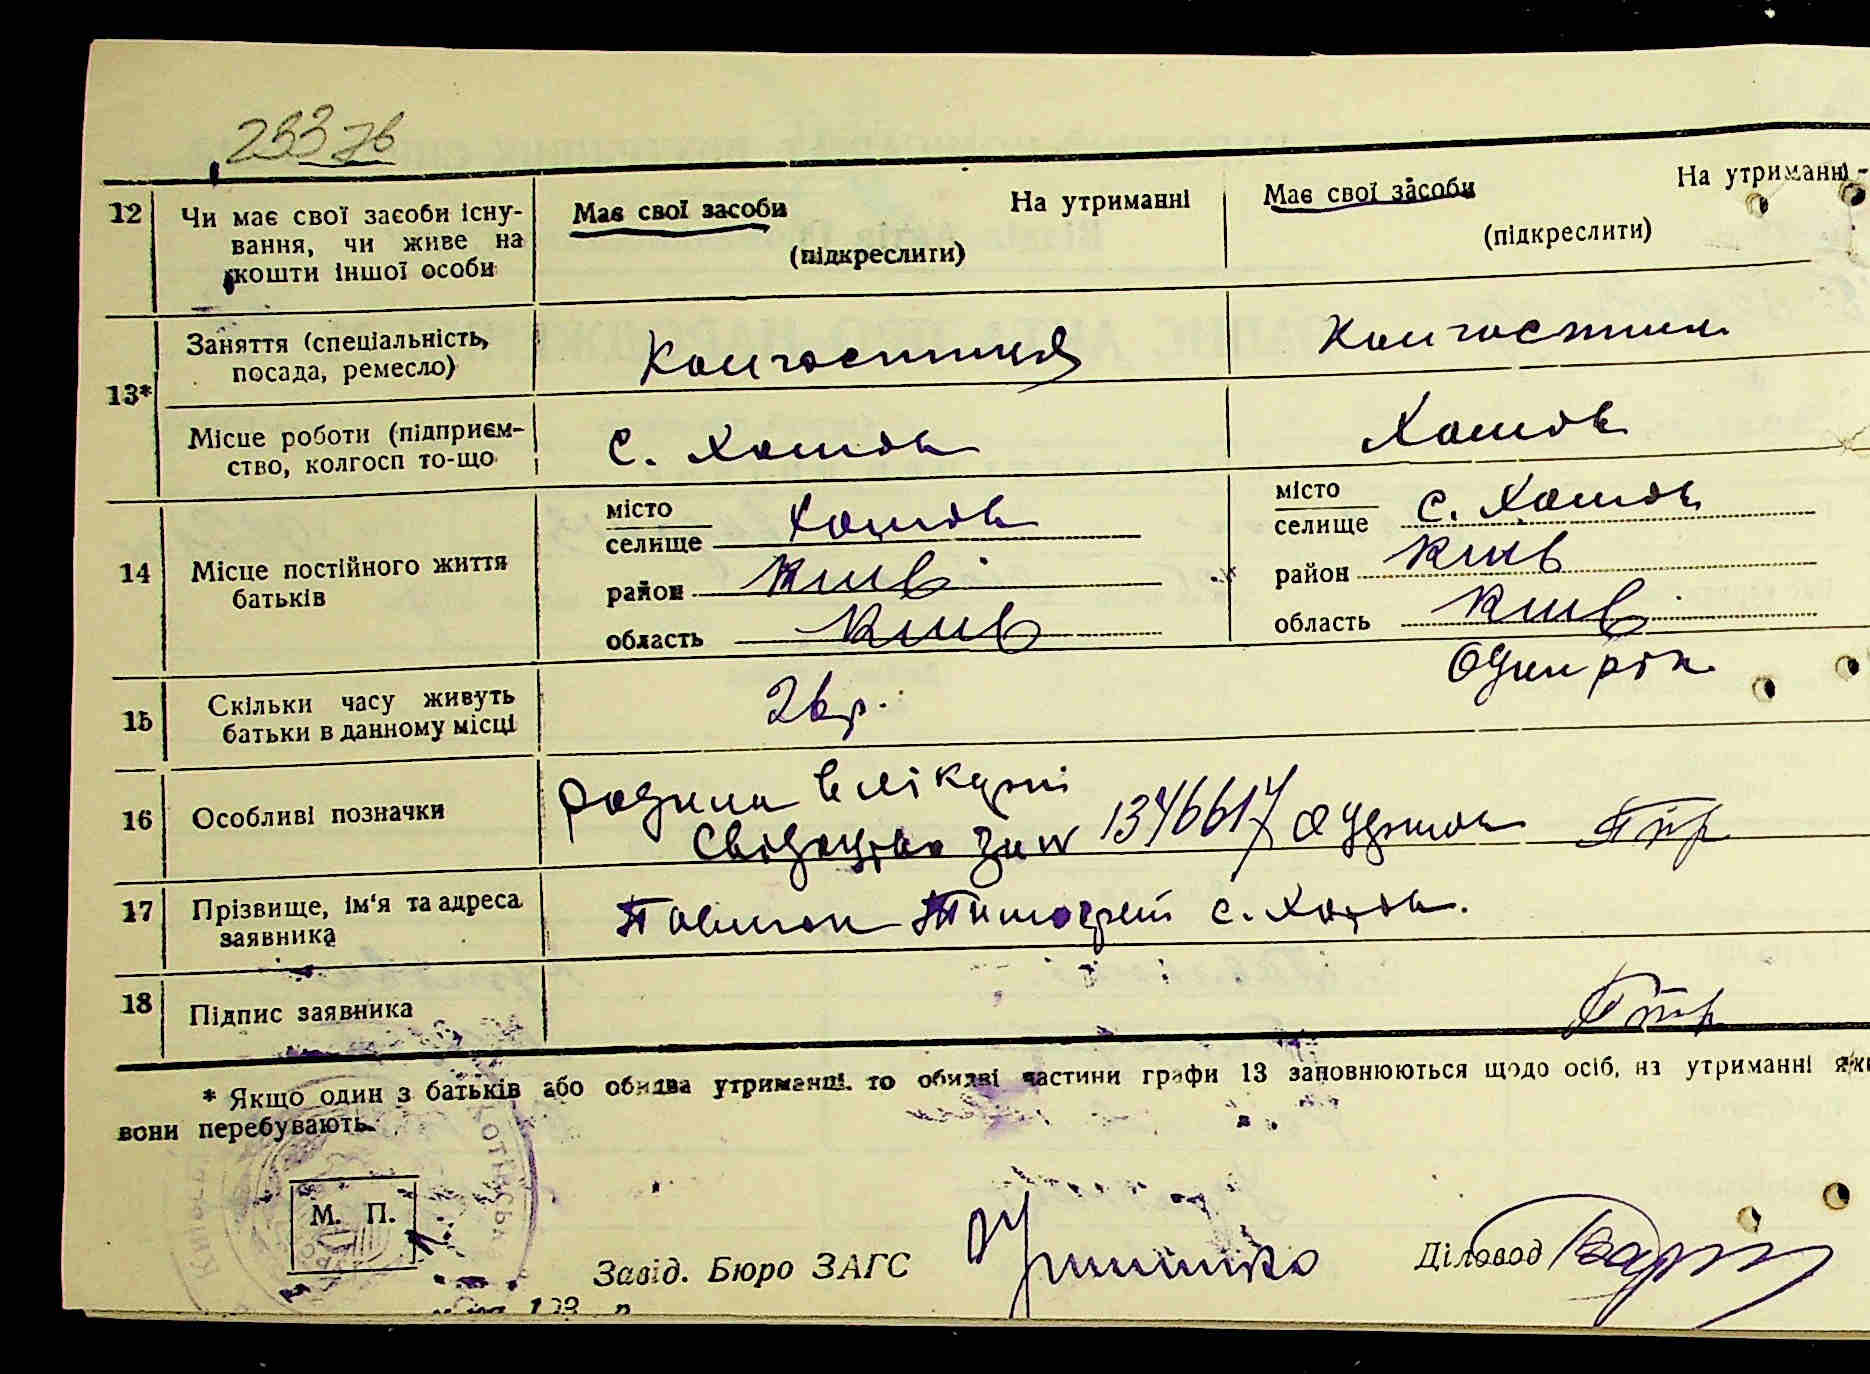 233 зв
12 Чи має свої засоби існу-
вання, чи живе на
кошти іншої особи
Має свої засоби На утриманні
(підкреслити)
Має свої засоби На утриманні -
(підкреслити)
13* Заняття (спеціальність,
посада, ремесло)
Колгоспниця
Колгоспник
Місце роботи (підприєм-
ство, колгосп то-що
с. Хотов
Хотов
14 Місце постійного життя
батьків
місто
селище Хотов
район Київ
область Київ
місто
селище с. Хотов
район Київ
область Київ
15 Скільки часу живуть
батьки в данному місці
26 р.
Один рік
16 Особливі позначки
родила в лікарні
Свідоцтво за № 1346617 одержав
17 Прізвище, ім'я та адреса
заявника
Тимофій с. Хотов.
18 Підпис заявника
* Якщо один з батьків або обидва утриманці, то обидві частини графи 13 заповнюються щодо осіб, на утриманні яки
вони перебувають.
М. П.
Завід. Бюро ЗАГС
Діловод